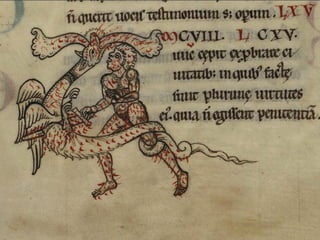 n̄ querit uocis testimonium s; operum. LXV
M CVIII. L CXV.
Tunc cepit exprobrare ci
uitatib; in quib; factę
sunt plurimę uirtutes
ei'. quia n̄ egissent penitentiā.